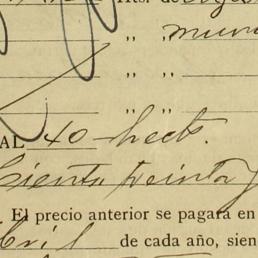 Hts. de
„ „
„ „
„ „
AL 40 hects.
Ciento treinta y
. El precio anterior se pagará en
bril de cada año, sien